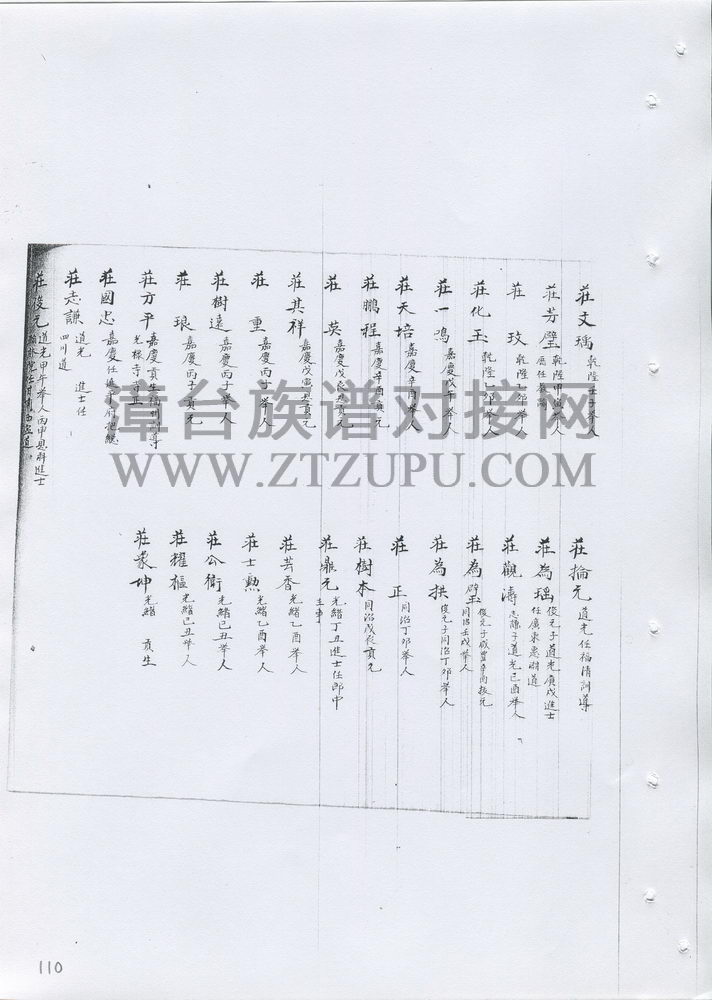 莊文瑀 乾隆壬子舉人
莊芳璧 乾隆甲寅舉人
莊玫 乾隆乙卯舉人
莊化玉 乾隆乙卯舉人
莊一鳴 嘉慶戊午舉人
莊天培 嘉慶辛酉舉人
莊鵬程 嘉慶辛酉貢元
莊英 嘉慶戊辰貢元
莊其祥 嘉慶戊寅貢元
莊重 嘉慶丙子舉人
莊樹遠 嘉慶丙子舉人
莊琅 嘉慶丙子貢元
莊方平 嘉慶貢生
光祿寺寺正
莊國忠 嘉慶任
莊志謙 道光 進士任
四川道
莊俊元 道光甲午舉人丙申恩科進士
莊掄元 道光任福清訓導
莊為瑤 俊元子道光庚戌進士
任廣東惠潮道
莊觀濤 志謙子道光己酉舉人
莊為璧 俊元子咸豐辛酉拔元
同治壬戌舉人
莊為拱 俊元子同治丁卯舉人
莊正 同治丁卯舉人
莊樹本 同治戊辰貢元
莊鼎元 光緒丁丑進士任郎中
主事
莊芳香 光緒乙酉舉人
莊士勲 光緒乙酉舉人
莊公衛 光緒己丑舉人
莊耀樞 光緒己丑舉人
莊蒙坤 光緒 貢生
漳台族谱对接网
WWW.ZTZUPU.COM
110